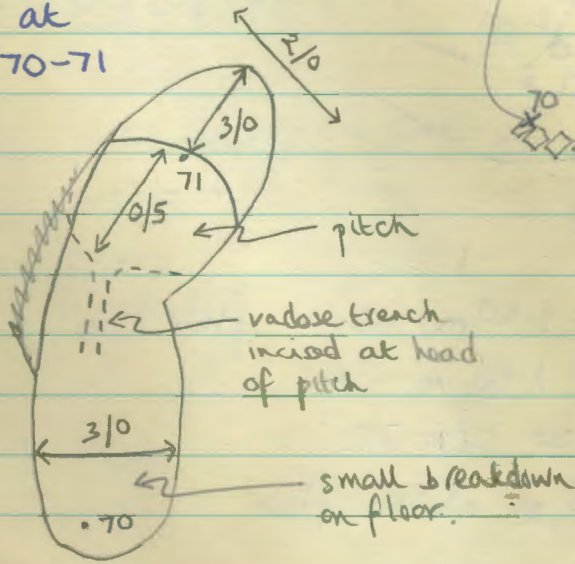 at
70-71
2/0
70
3/0
71
0/5
pitch
vadose trench
incised at head
of pitch
3/0
small breakdown
on floor.
70